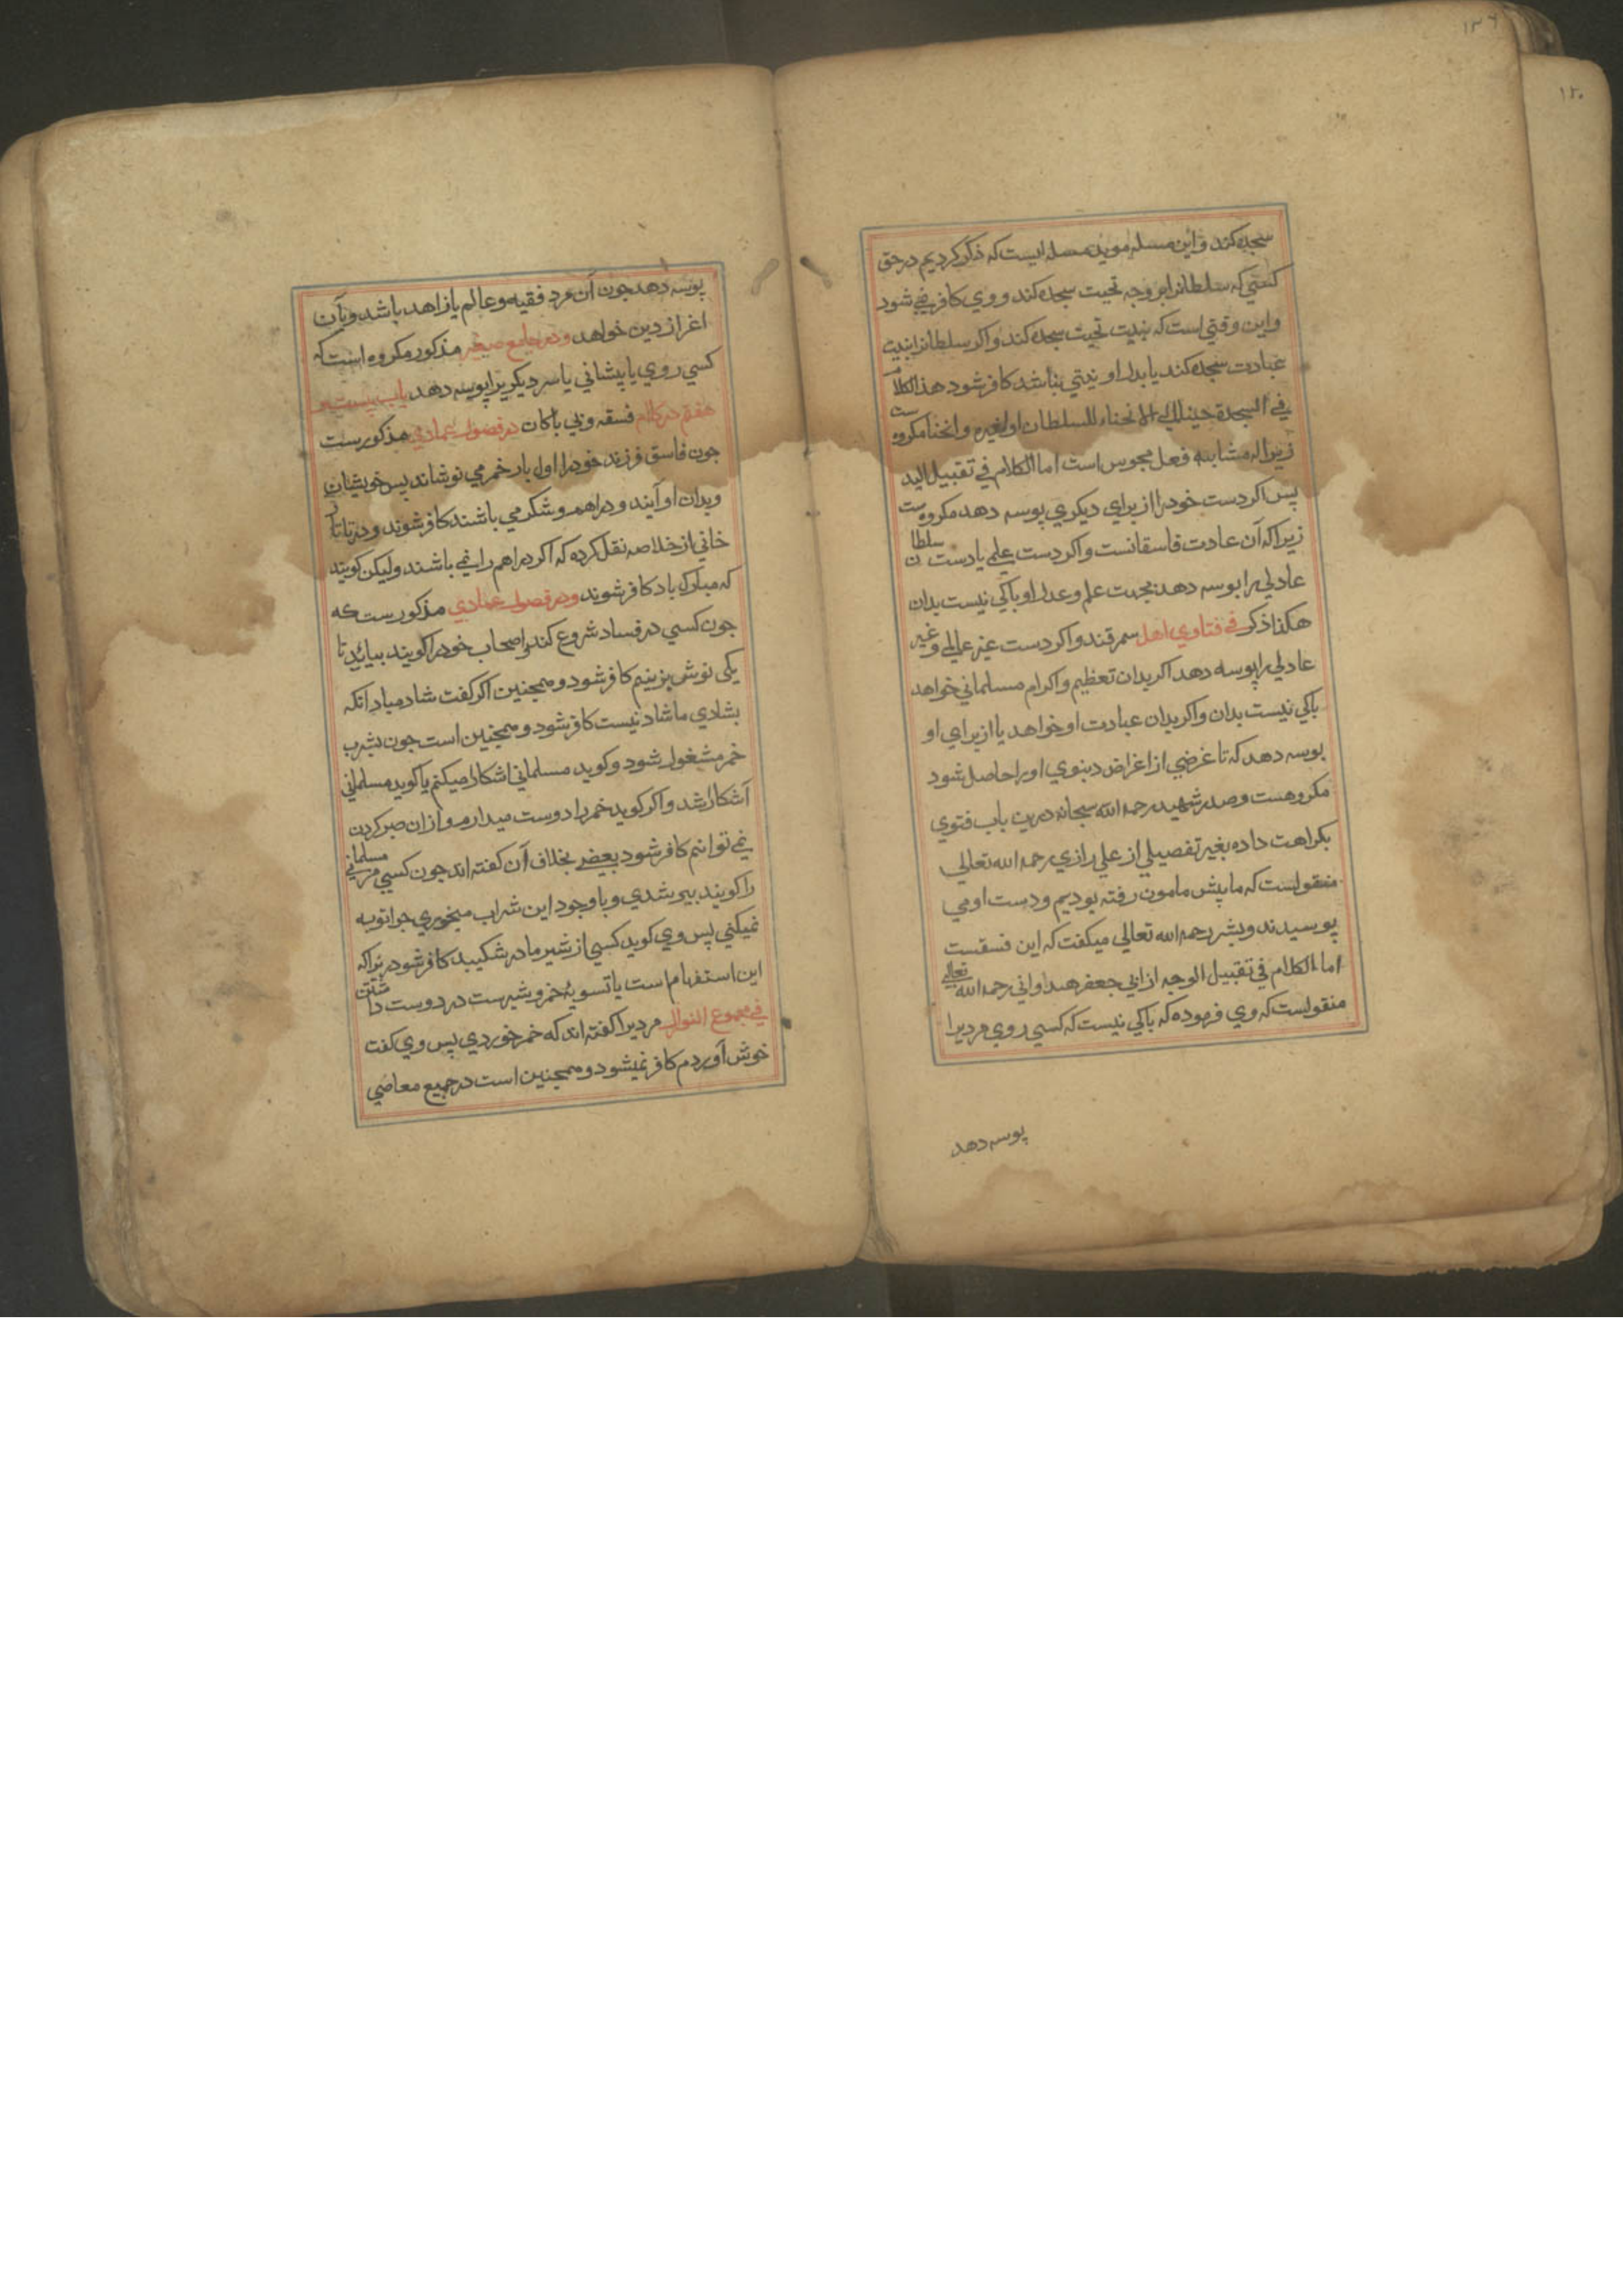 ۱۳۶
۱۲۰
سجده کند و این مسله موید مسله ایست که ذکر کردیم در حق
کسی که سلطانرا بر وجه تحیت سجده کند و وی کافر نمی شود
و این وقتی است که بنیت تحیت سجده کند و اکر سلطانرا بنیت
عبادت سجده کند یا بدل او نیتی نباشد کافر شود هذا الکلام
في السجدة الانحناء للسلطان او لغیره و انحنا مکروه ست
زیرا که مشابه فعل مجوس است اما الکلام في تقبیل الید
پس اکر دست خود را از برای دیکری بوسه دهد مکروه ست
زیرا که آن عادت فاسقانست و اکر دست علمی یا دست سلطان
عادلی را بوسه دهد بجهت علم و عدل او باکی نیست بدان
هکذا ذکر في فتاوي اهل سمرقند و اکر دست غیر عالمی و غیر
عادلی را بوسه دهد اکر بدان تعظیم و اکرام مسلمانی خواهد
باکی نیست بدان و اکر بدان عبادت او خواهد یا از برای او
بوسه دهد که تا غرضی از اغراض دینوی او را حاصل شود
مکروهست و صدر شهید رحمه الله سبحانه درین باب فتوی
بکراهت داده بغیر تفصیلی از علی رازی رحمه الله تعالی
منقولست که ما پیش مامون رفته بودیم و دست او می
بوسیدند و بشر رحمه الله تعالی میکفت که این فسقست
اما الکلام في تقبیل الوجه از ابی جعفر هنداوانی رحمه الله تعالی
منقولست که وی فرموده که باکی نیست که کسی روی مردیرا
بوسه دهد
بوسه دهد جون آن مرد فقیه و عالم یا زاهد باشد و بآن
اغراز دین خواهد و در جامع صغیر مذکور مکروه است که
کسی روی یا پیشانی یا سر دیکریرا بوسه دهد باب بیست و
هفتم در کلام فسقه و بی باکان در فصول عمادی مذکورست
جون فاسق فرزند خود را اول بار خمر می نوشاند پس خویشان
و بدان او آیند و دراهم و شکر می باشند کافر شوند و در تاتار
خانی از خلاصه نقل کرده که اکر دراهم را نمی باشند و لیکن کویند
که مبارک باد کافر شوند و در فصول عمادی مذکورست که
جون کسی در فساد شروع کند و اصحاب خود را کویند بیائید تا
یکی نوش بزنیم کافر شود و همجنین اکر کفت شاد مباد آنکه
بشادی ما شاد نیست کافر شود و همجنین است جون بشرب
خمر مشغول شود و کوید مسلمانی اشکارا میکنم یا کوید مسلمانی
آشکارا شد و اکر کوید خمر را دوست میدارم و از ان صبر کردن
نمی توانم کافر شود بعضی بخلاف آن کفته اند جون کسی مر مسلمانی
را کویند پیر شدی و با وجود این شراب میخوری جرا توبه
نمیکنی پس وی کوید کسی از شیر مادر شکیبد کافر شود زیرا که
این استفهام است یا تسویهٔ خمر و شیرست در دوست داشتن
في مجموع النوازل مردیرا کفته اند که خمر خوردی پس وی کفت
خوش آوردم کافر نمیشود و همجنین است در جمیع معاصی